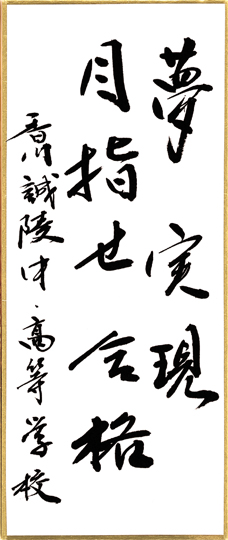 夢実現
目指せ合格
香川誠陵中・高等学校